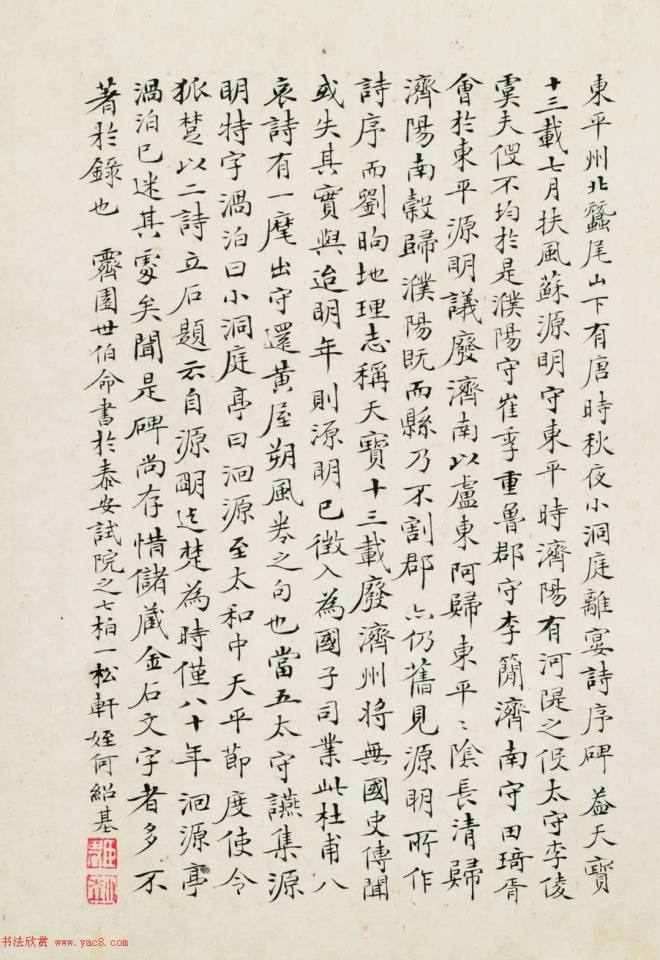 東平州北蠶尾山下有唐時秋夜小洞庭離宴詩序碑蓋天寶
十三載七月扶風蘇源明守東平時濟陽有河隄之役太守李倰
虞夫役不均於是濮陽守崔季重魯郡守李蘭濟南守田琦胥
會於東平源明議廢濟南以盧東阿歸東平〻陰長清歸
濟陽南穀歸濮陽既而縣乃不割郡亦仍舊見源明所作
詩序而劉昫地理志稱天寶十三載廢濟州將無國史傳聞
或失其實與迨明年則源明已徵入為國子司業此杜甫八
哀詩有一麾出守還黃屋朔風卷之句也當五太守讌集源
明特字渦泊曰小洞庭亭曰洄源至太和中天平節度使令
狐楚以二詩立石題云自源明迄楚為時僅八十年洄源亭
渦泊已迷其處矣聞是碑尚存惜儲藏金石文字者多不
著於錄也 霽園世伯命書於泰安試院之七柏一松軒姪何紹基
书法欣赏 www.yac8.com